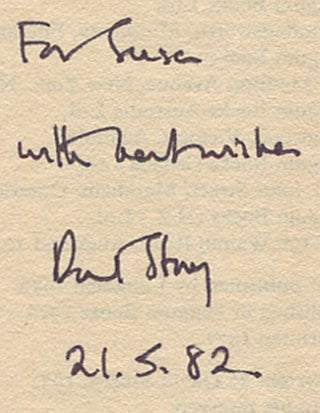 For Susan
with best wishes
David Storey
21.5.82